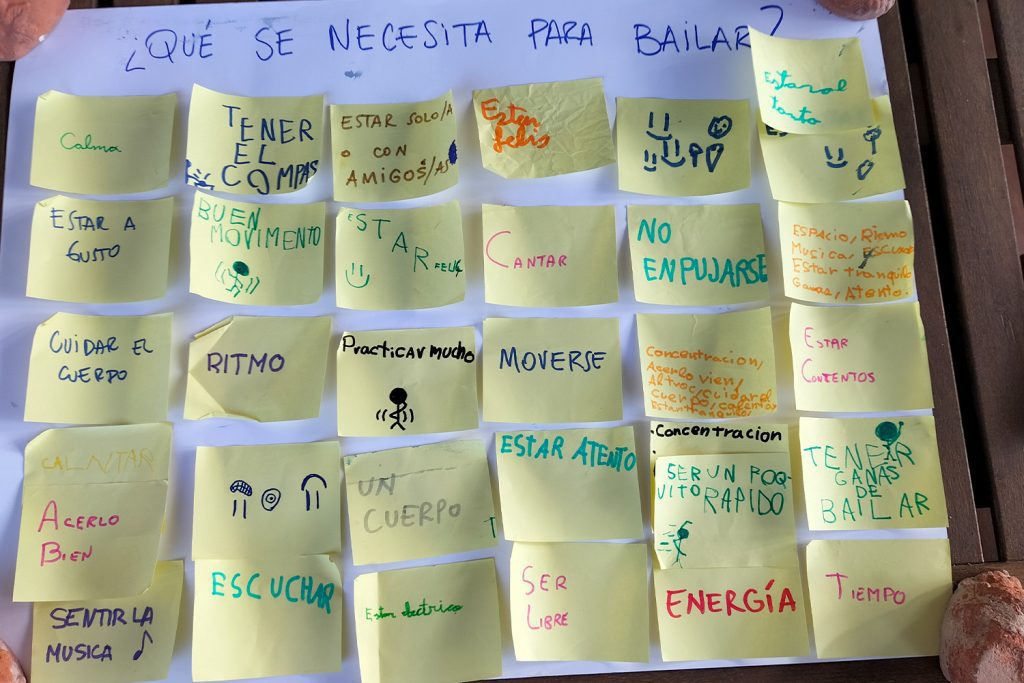 ¿QUÉ SE NECESITA PARA BAILAR?
Calma
TENER
EL
COMPAS
ESTAR SOLO/A
O CON
AMIGOS/AS
Estar
felis
Estar al
tanto
ESTAR A
GUSTO
BUEN
MOVIMENTO
ESTAR FELIZ
CANTAR
NO
ENPUJARSE
ESPACIO, Ritmo
Musica, ESCUCHAR
Estar tranquilo
Ganas, Atento.
CUIDAR EL
CUERPO
RITMO
Practicar mucho
MOVERSE
Concentracion,
Acerlo vien,
cuidar el
cuerpo,
ESTAR
CONTENTOS
CALNTAR
ACERLO
BIEN
UN
CUERPO
ESTAR ATENTO
Concentracion
SER UN POQ-
UITO RAPIDO
TENER
GANAS
DE
BAILAR
SENTIR LA
MUSICA
ESCUCHAR
Estar electrico
SER
LIBRE
ENERGÍA
TIEMPO